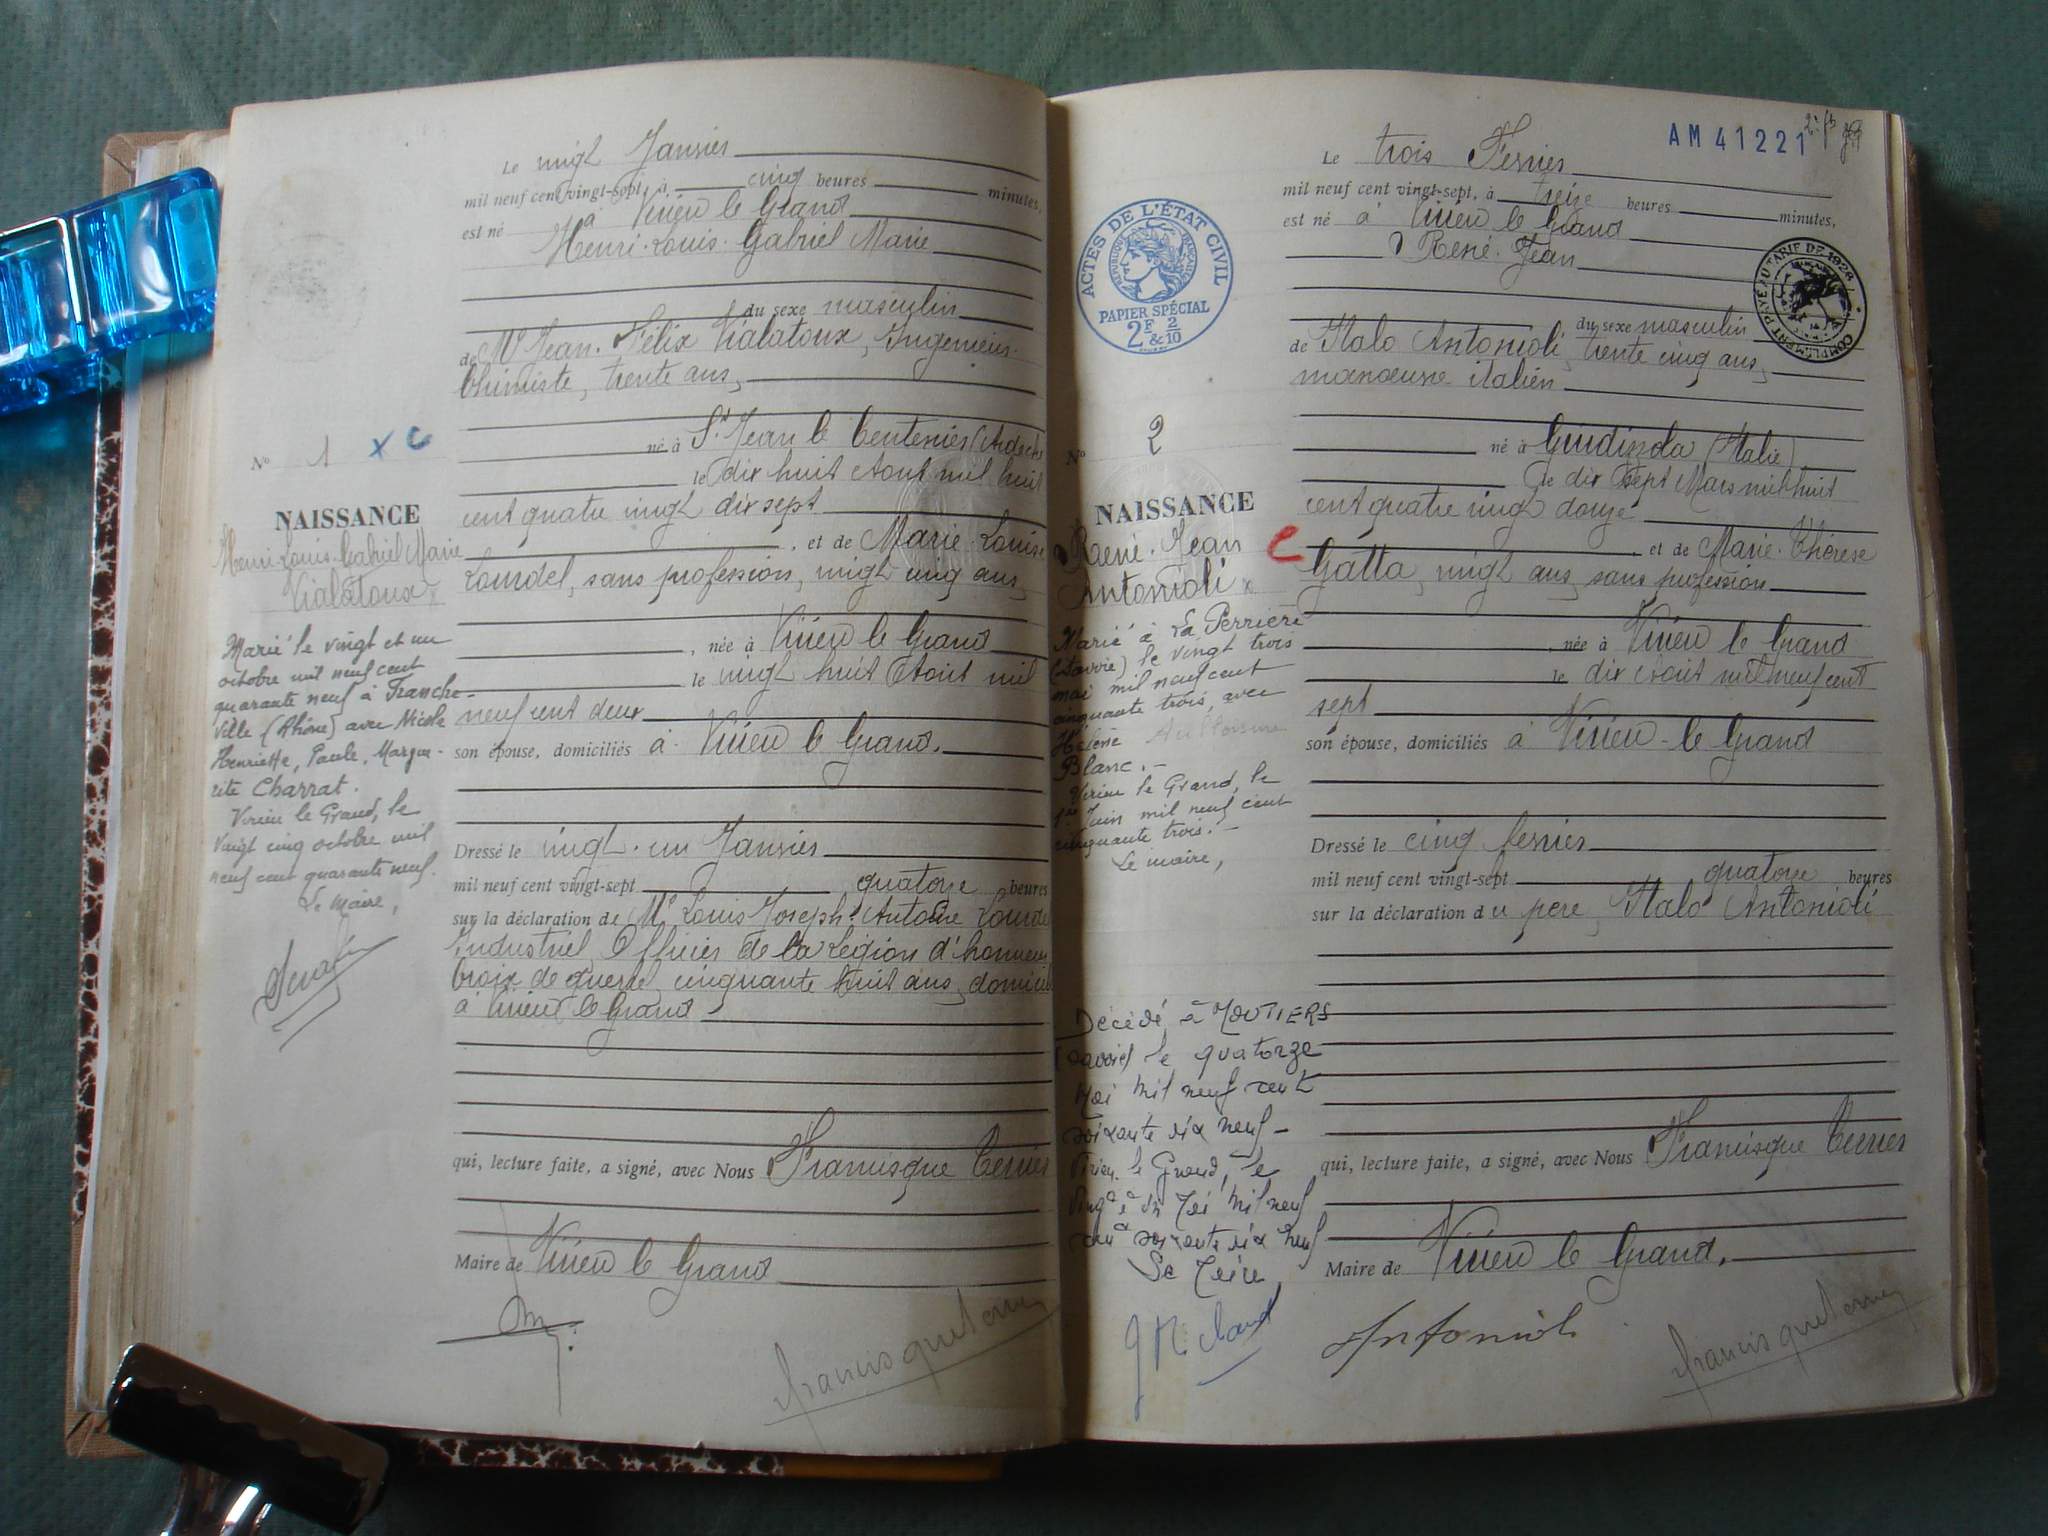 Le vingt Janvier
mil neuf cent vingt-sept, à cinq heures minutes,
est né à Virieu le Grand
Henri-Louis-Gabriel Marie
du sexe masculin
de Mr Jean-Félix Vialatoux, Ingénieur
Chimiste, trente ans,
né à St Jean le Centenier (Ardèche
le dix huit Aout mil huit
cent quatre vingt dix sept
, et de Marie-Louise
Lourdel, sans profession, vingt cinq ans,
, née à Virieu le Grand
le vingt huit Aout mil
neuf cent deux
son épouse, domiciliés à Virieu le Grand.
Dressé le vingt-un Janvier
mil neuf cent vingt-sept quatorze heures
sur la déclaration de Mr Louis Joseph Antoine Lourdel
Industriel, Officier de la Légion d'honneur
Croix de guerre, cinquante huit ans, domicilié
à Virieu le Grand
qui, lecture faite, a signé, avec Nous Francisque Terrier
Maire de Virieu le Grand
francisque terrier
No 1 X C
NAISSANCE
Henri-Louis-Gabriel Marie
Vialatoux
Marié le vingt et un
octobre mil neuf cent
quarante neuf à Franche-
ville (Rhône) avec Nicole
Henriette, Paule, Margue-
rite Charrat.
Virieu le Grand, le
vingt cinq octobre mil
neuf cent quarante neuf.
Le Maire,
AM 41221
Le trois Fevrier
mil neuf cent vingt-sept, à treize heures minutes,
est né à Virieu le Grand
René-Jean
du sexe masculin
de Italo Antonioli, trente cinq ans,
manœuvre italien
né à Guidizzolo (Italie)
le dix sept Mars mil huit
cent quatre vingt douze
, et de Marie-Thérèse
Gatta, vingt ans, sans profession
, née à Virieu le Grand
le dix Aout mil neuf cent
sept
son épouse, domiciliés à Virieu-le Grand
Dressé le cinq fevrier
mil neuf cent vingt-sept quatorze heures
sur la déclaration du pere, Italo Antonioli
qui, lecture faite, a signé, avec Nous Francisque Terrier
Maire de Virieu le Grand.
Antonioli
francisque terrier
ACTES DE L'ÉTAT CIVIL
RÉPUBLIQUE FRANÇAISE
PAPIER SPÉCIAL
2F & 2/10
COMPLÉMENT PAYÉ AU TARIF DE 1926
No 2
NAISSANCE
René-Jean C
Antonioli
Marié à La Perrière
(Savoie) le vingt trois
mai mil neuf cent
cinquante trois, avec
Hélène
Blanc.-
Virieu le Grand, le
1er Juin mil neuf cent
cinquante trois.-
Le maire,
Décédé à MOUTIERS
(Savoie) le quatorze
Mai mil neuf cent
soixante dix neuf -
Virieu le Grand, le
vingt et un Mai mil neuf
cent soixante dix neuf
Le Maire